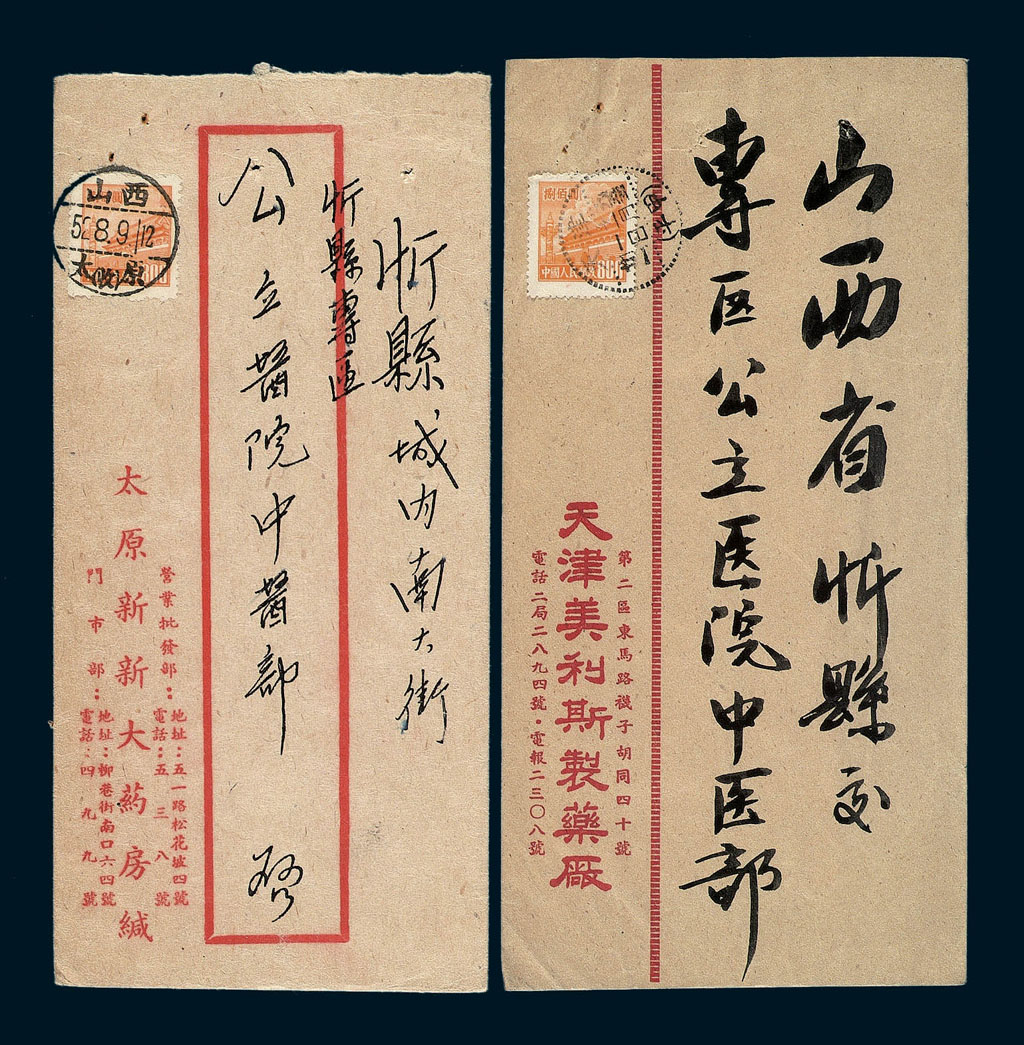 忻縣城内南大街
忻縣專區
公立醫院中醫部 啓
山西
5 8.9 12
太(收)原
800
太原新新大药房缄
營業批發部：
地址：五一路松花坡四號
電話：五三八號
門市部：
地址：柳巷街南口六四號
電話：四九九號
山西省忻縣交
專区公立医院中医部
捌佰圓
中國人民郵政800
第二區東馬路襪子胡同四十號
天津美利斯製藥厰
電話二局二八九四號·電報二三〇八號